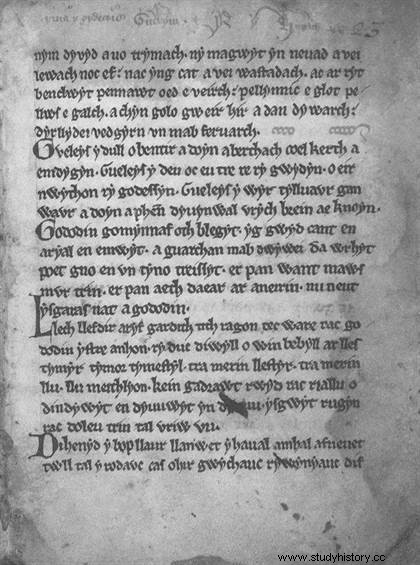 25
nym dyvyd a uo trymach. ny magwyt yn neuad a vei
lewach noc ef: nac yng cat a vei wastadach. ac ar ryt
benclwyt pennawt oed e veirch: pellynnic e glot pe
llws e galch. a chyn golo gweir hir a dan dywarch:
dyrllydei vedgyrn vn mab feruarch.
Gueleys y dull o bentir a doyn aberthach coel kerth a
emdygyn. Gueleys y deu oc eu tre re ry gwydyn. o eir
nwython ry godessyn. Gueleys y wyr tylluavr gan
wavr a doyn a phenn dyuynwal vrych brein ae knoyn.
Gododin gomynnaf oth blegyt. yg gwyd cant en
aryal en emwyt. a guarchan mab dwywei da wrhyt
poet gno en vn tyno treissyt. er pan want maws
mvr trin. er pan aeth daear ar aneirin. nu neut
ysgaras nat a gododin.
Llech llefdir aryf gardith tith ragon tec ware rac go
dodin ystre anhon. ry duc diwyll o win bebyll ar lles
tymyr tymor tymestyl. tra merin llestyr. tra merin
llu. llu meithlyon. kein gadrawt rwyd rac riallu o
dindywyt en dyuuwyt yn ysgwyt rugyn
rac doleu trin tal vriw vu.
Dihenyd y bop llaur llanwet y haual amhal afneuet
twll tal y rodavc cas ohir gwychauc rywynyauc dif
www.studyhistory.cc